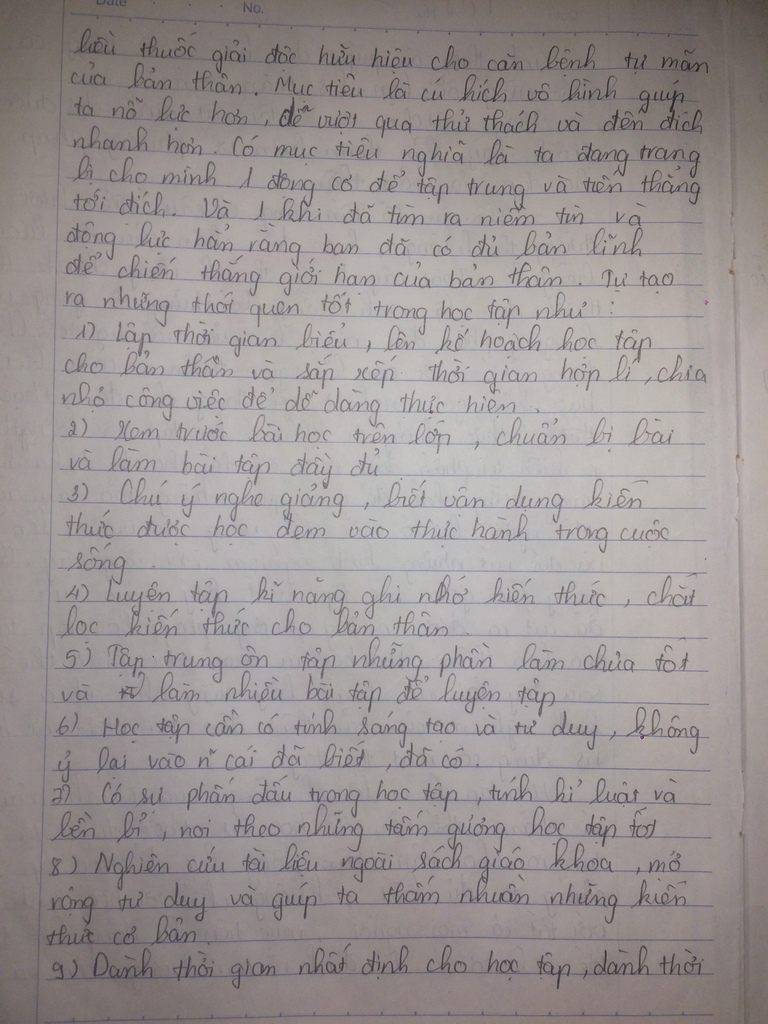 Date No.
liều thuốc giải độc hữu hiệu cho căn bệnh tự mãn
của bản thân. Mục tiêu là cú hích vô hình guíp
ta nỗ lực hơn, để vượt qua thử thách và đến đích
nhanh hơn. Có mục tiêu nghĩa là ta đang trang
bị cho mình 1 động cơ để tập trung và tiến thẳng
tới đích. Và 1 khi đã tìm ra niềm tin và
động lực hẳn rằng bạn đã có đủ bản lĩnh
để chiến thắng giới hạn của bản thân. Tự tạo
ra những thói quen tốt trong học tập như :
1) Lập thời gian biểu, lên kế hoạch học tập
cho bản thân và sắp xếp thời gian hợp lí, chia
nhỏ công việc để dễ dàng thực hiện.
2) Xem trước bài học trên lớp, chuẩn bị bài
và làm bài tập đầy đủ
3) Chú ý nghe giảng, biết vận dụng kiến
thức được học đem vào thực hành trong cuộc
sống.
4) Luyện tập kĩ năng ghi nhớ kiến thức, chắt
lọc kiến thức cho bản thân.
5) Tập trung ôn tập những phần làm chưa tốt
và làm nhiều bài tập để luyện tập
6) Học tập cần có tính sáng tạo và tư duy, không
ỷ lại vào n~ cái đã biết, đã có.
7) Có sự phấn đấu trong học tập, tính kỉ luật và
bền bỉ, noi theo những tấm gương học tập tốt
8) Nghiên cứu tài liệu ngoài sách giáo khoa, mở
rộng tư duy và guíp ta thấm nhuần những kiến
thức cơ bản.
9) Dành thời gian nhất định cho học tập, dành thời